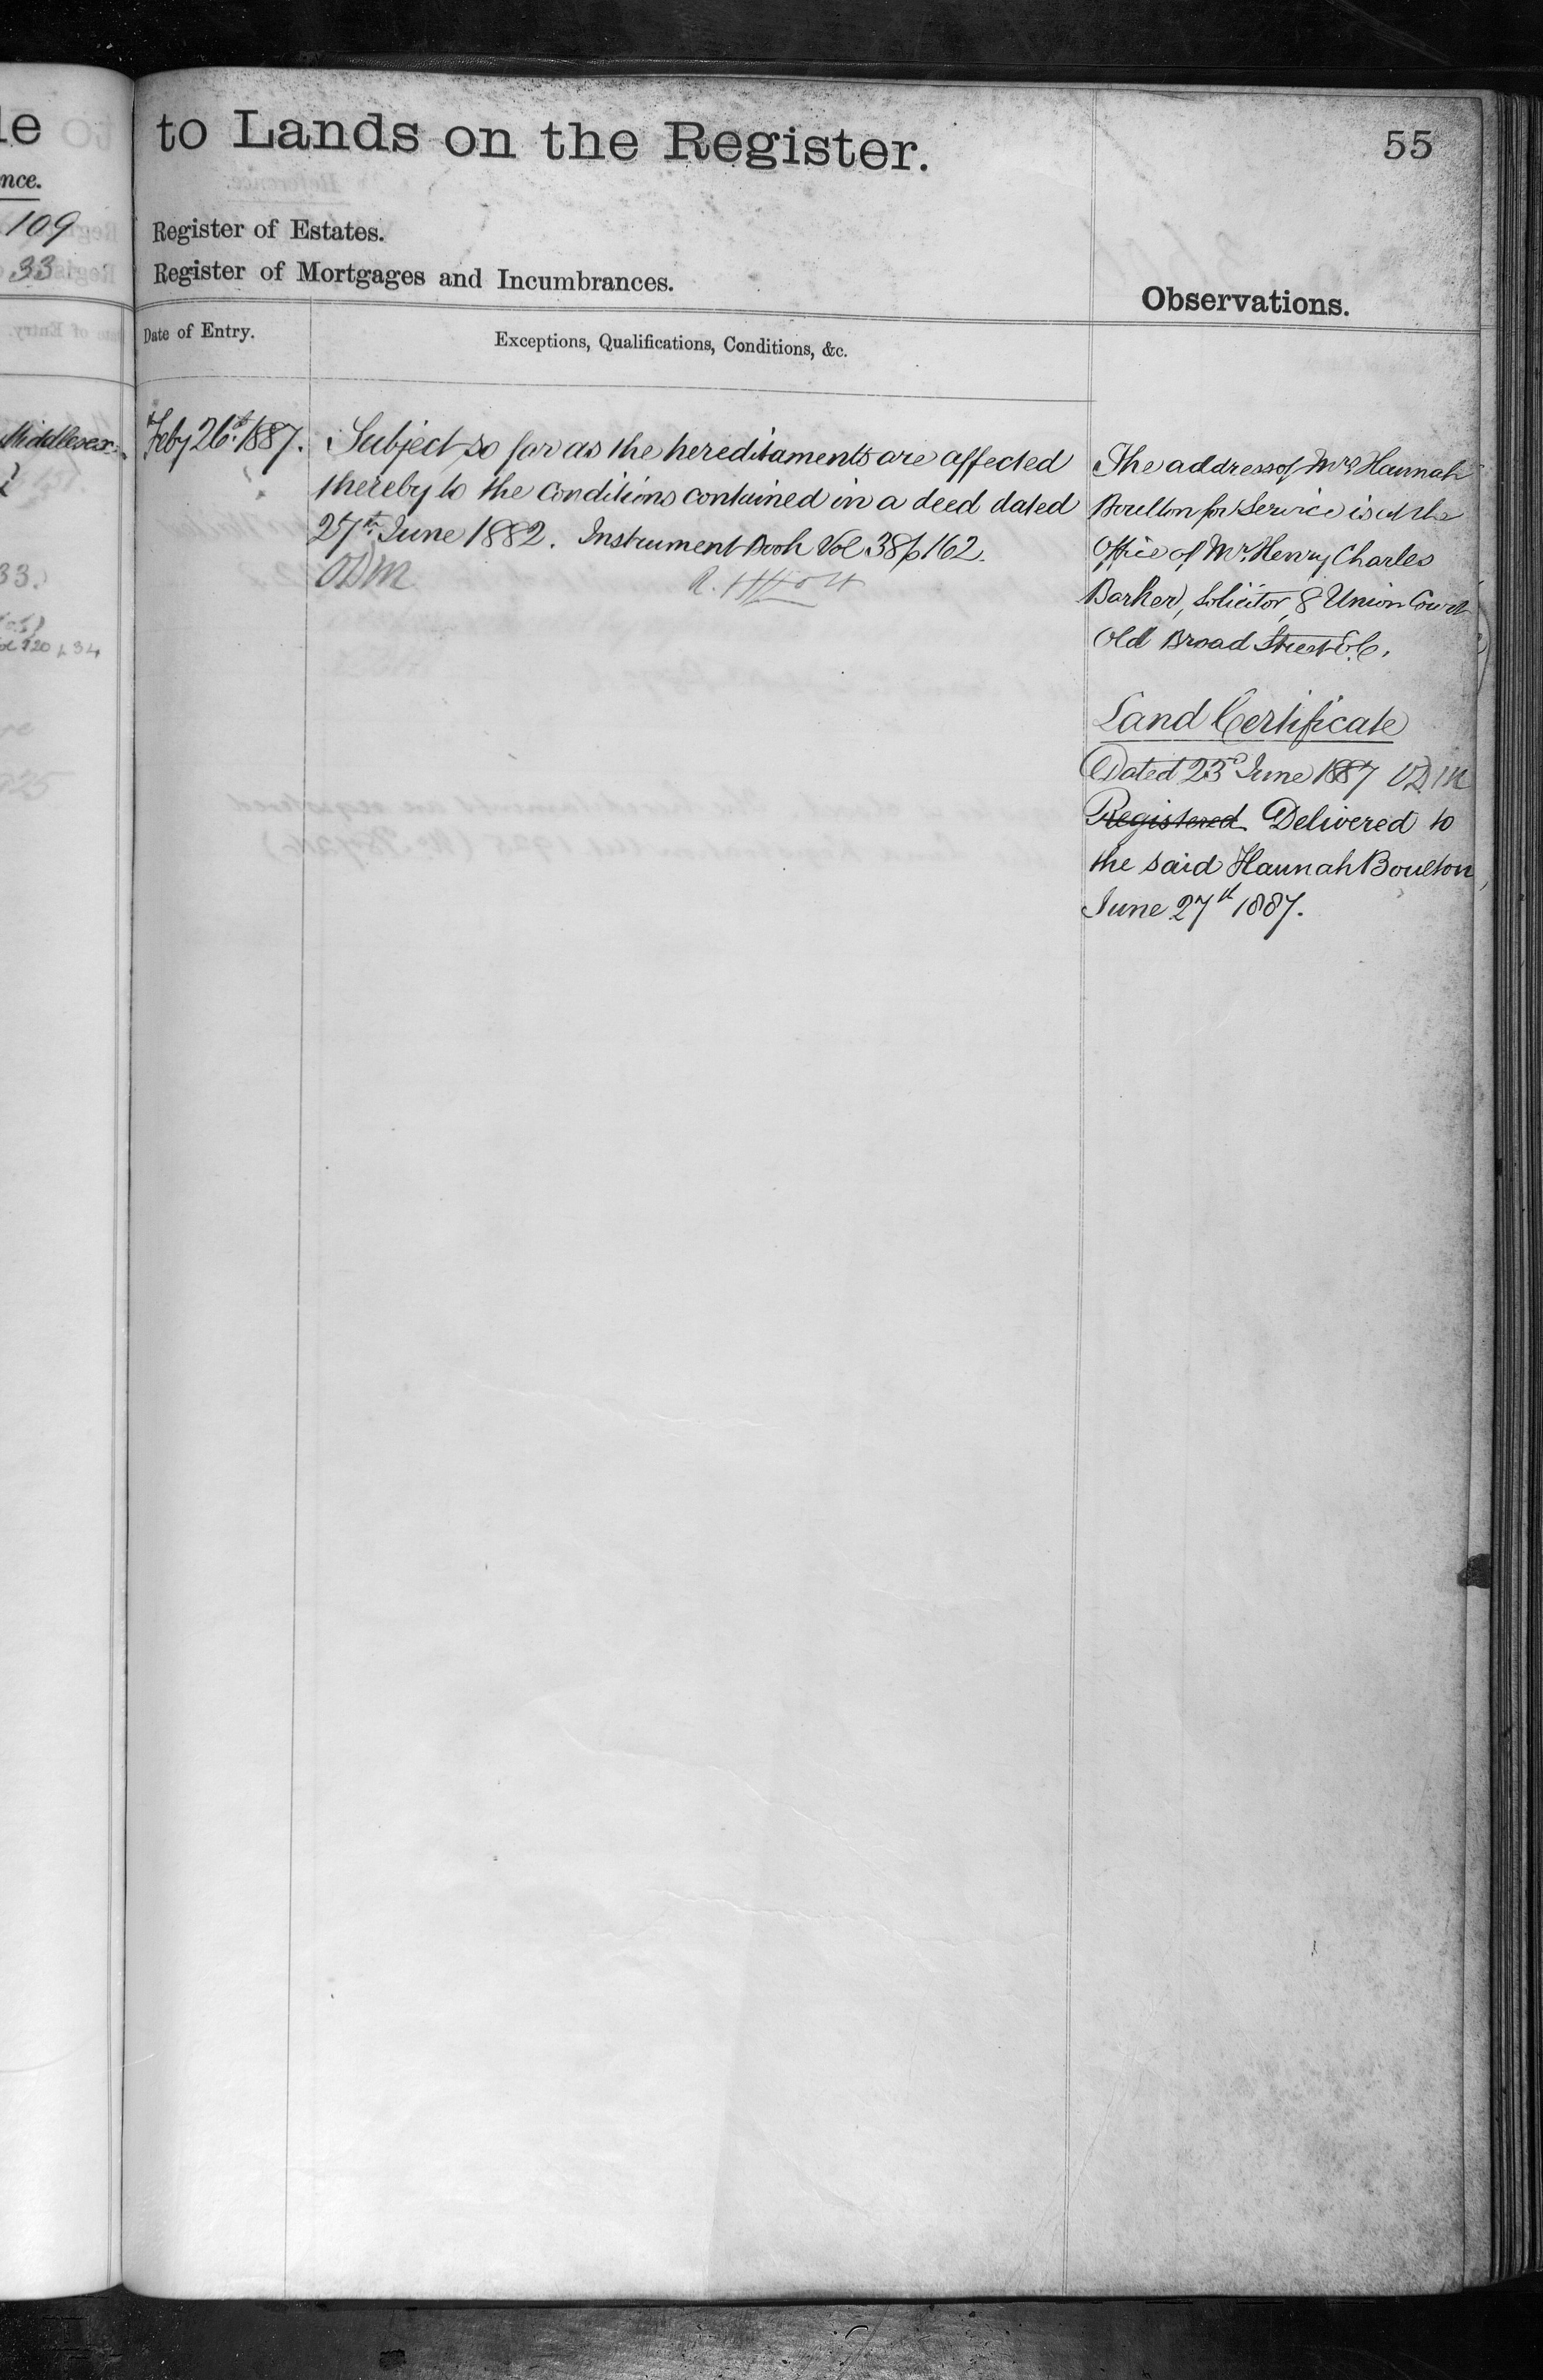 le
nce.
109
33
Middlesex
33.
to Lands on the Register.
55
Register of Estates.
Register of Mortgages and Incumbrances.
Observations.
Date of Entry.
Exceptions, Qualifications, Conditions, &c.
Feby 26th 1887.
Subject so far as the hereditaments are affected
thereby to the conditions contained in a deed dated
27th June 1882. Instrument Book Vol 38 p 162.
ODM
The address of Mrs Hannah
Boulton for Service is at the
Office of Mr. Henry Charles
Barker, Solicitor, 8 Union Court
Old Broad Street E.C.
Land Certificate
Dated 23d June 1887 ODM
Registered Delivered to
the said Hannah Boulton,
June 27th 1887.